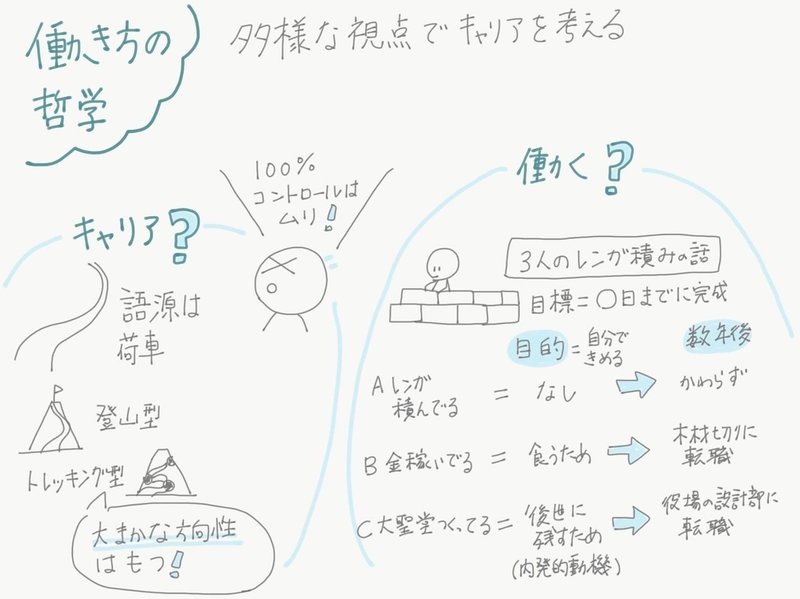 働き方の
哲学
多様な視点でキャリアを考える
100%
コントロールは
ムリ!
キャリア?
語源は
荷車
登山型
トレッキング型
大まかな方向性
はもつ!
働く?
3人のレンガ積みの話
目標=〇日までに完成
目的=自分で
きめる
数年後
Aレンガ
積んでる
=
なし
かわらず
B金稼いでる
=
食うため
木材切りに
転職
C大聖堂つくってる
=
後世に
残すため
(内発的動機)
役場の設計部に
転職